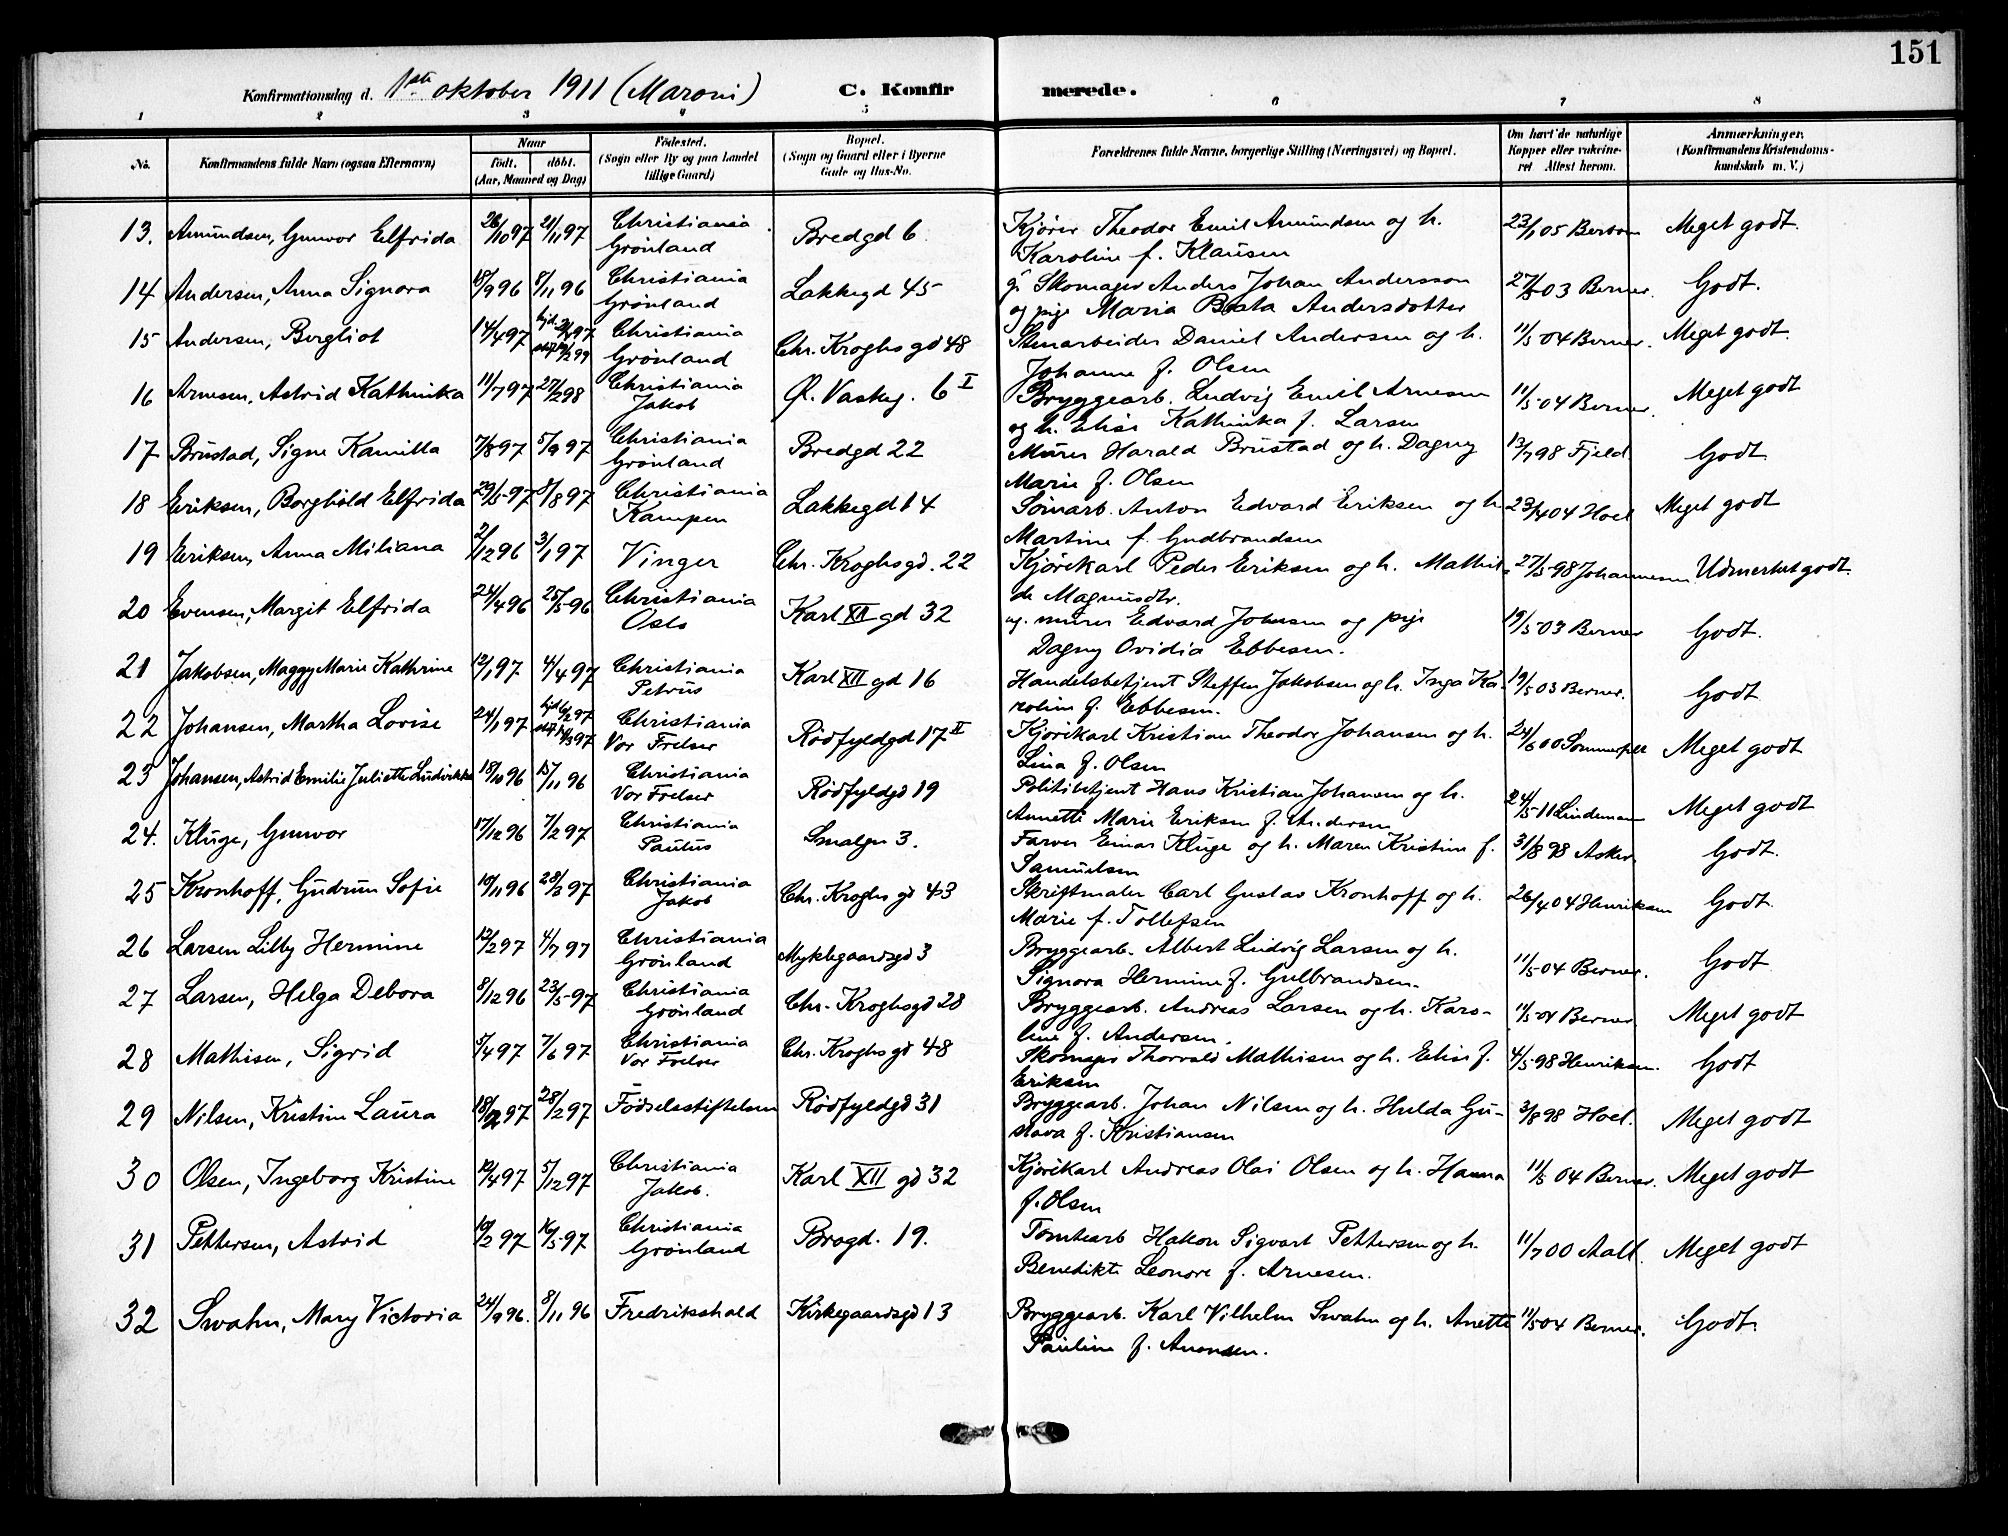 151
Konfirmationsdag d. 1ste oktober 1911 (Maroni) C. Konfir merede.
1 2 3 4 5 6 7 8
No. Konfirmandens fulde Navn (ogsaa Efternavn) Naar født. døbt. (Aar, Maaned og Dag) Fødested. (Sogn eller By og paa Landet tillige Gaard) Bopæl. (Sogn og Gaard eller i Byerne Gade og Hus-No. Forældrenes fulde Navne, borgerlige Stilling (Næringsvei) og Bopæl. Om havt de naturlige Kopper eller vakcineret Attest herom. Anmærkninger. (Konfirmandens Kristendomskundskab m. V.)
13. Amundsen, Gunvor Elfrida 26/10 97 21/11 97 Christiania Grönland Bredgd 6 Kjörer Theodor Emil Amundsen og h. 23/1 05 Meget godt.
Karoline f. Klausen
14 Andersen, Anna Signora 18/9 96 8/11 96 Christiania Grönland Lakkegd 45 g. Skomager Anders Johan Andersson 03 Berner. Godt.
og pige Maria Beata Andersdotter
15 Andersen, Bergliot 14/4 97 Christiania Grönland Chr. Kroghs gd 48 Stenarbeider Daniel Andersen og h. 11/5 04 Berner. Meget godt.
Johanne f. Olsen
16 Arnesen, Astrid Kathinka 11/7 97 27/2 98 Christiania Jakob Ø. Vaskeg. 6 I Bryggearb. Ludvig Emil Arnesen 11/5 04 Berner. Meget godt
og h. Elise Kathinka f. Larsen
17 Brustad, Signe Kamilla 7/8 97 5/9 97 Christiania Grönland Bredgd 22 Murer Harald Brustad og h. Dagny 13/7 98 Fjeld. Godt
Marie f. Olsen
18 Eriksen, Borghild Elfrida 29/5 97 8/8 97 Christiania Kampen Lakkegd 14 Tömarb. Anton Edvard Eriksen og h 23/4 04 Hoel Meget godt
Martine f. Gudbrandsen
19 Eriksen, Anna Miliana 2/12 96 3/1 97 Vinger Chr. Kroghsgd. 22 Kjörekarl Peder Eriksen og h. Mathil- 27/5 98 Johannesen Udmerket godt.
de Magnusdtr.
20 Evensen, Margit Elfrida 24/4 96 25/5 96 Christiania Oslo Karl XII gd 32 ug. murer Edvard Johnsen og pige 19/5 03 Berner Godt.
Dagny Ovidia Ebbesen.
21 Jakobsen, Maggy Marie Kathrine 12/1 97 4/4 97 Christiania Petrus Karl XII gd 16 Handelsbetjent Steffen Jakobsen og h. Inga Ka- 19/5 03 Berner. Godt
roline f. Ebbesen.
22 Johansen, Martha Lovise 24/1 97 Christiania Vor Frelser Rödfyldgd 17 II Kjörekarl Kristian Theodor Johansen og h. 24/6 00 Sommerfelt Meget godt
Lina f. Olsen
23 Johansen, Astrid Emilie Juliette Ludvikka 18/10 96 15/11 96 Christiania Vor Frelser Rödfyldgd 19 Politibetjent Hans Kristian Johansen og h. 24/5 11 Lindeman Meget godt
Annette Marie Eriksen f. Andersen
24. Kluge, Gunvor 17/12 96 7/2 97 Christiania Paulus Smalgn 3. Farver Einar Kluge og h. Maren Kristine f. 31/8 98 Asker Godt.
Samuelsen
25 Kronhoff, Gudrun Sofie 19/11 96 28/3 97 Christiania Jakob Chr. Kroghs gd 43 Skriftmaler Carl Gustav Kronhoff og h. 26/4 04 Henriksen Godt.
Marie f. Tollefsen
26 Larsen Lilly Hermine 12/2 97 4/7 97 Christiania Grönland Myklegaardsgd 3 Bryggearb. Albert Ludvig Larsen og h. 11/5 04 Berner. Godt
Signora Hermine f. Gulbrandsen.
27 Larsen, Helga Debora 8/12 96 23/5 97 Christiania Grönland Chr. Kroghsgd 28 Bryggearb. Andreas Larsen og h. Karo- 11/5 04 Berner Meget godt
line f. Andersen.
28 Mathisen, Sigrid 5/4 97 7/6 97 Christiania Vor Frelser Chr. Kroghs gd 48 Skomager Thorvald Mathisen og h. Elise f. 4/5 98 Henriksen. Godt
Eriksen
29 Nilsen, Kristine Laura 18/2 97 28/2 97 Födselsstiftelsen Rödfyldgd 31 Bryggearb. Johan Nilsen og h. Hulda Gu- 3/8 98 Hoel. Meget godt
stava f. Kristiansen
30 Olsen, Ingeborg Kristine 19/4 97 5/12 97 Christiania Jakob. Karl XII gd 32 Kjörekarl Andreas Olai Olsen og h. Hanna 11/5 04 Berner. Meget godt
f. Olsen
31 Pettersen, Astrid 10/2 97 16/5 97 Christiania Grönland Brogd. 19. Tomtearb Hakon Sigvart Pettersen og h. 11/7 00 Aall Meget godt
Benedikte Leonore f. Arnesen.
32 Swahn, Mary Victoria 24/9 96. 8/11 96 Fredrikshald Kirkegaardsgd 13 Bryggearb. Karl Vilhelm Swahn og h. Anette 11/5 04 Berner. Godt.
Pauline f. Anonsen.